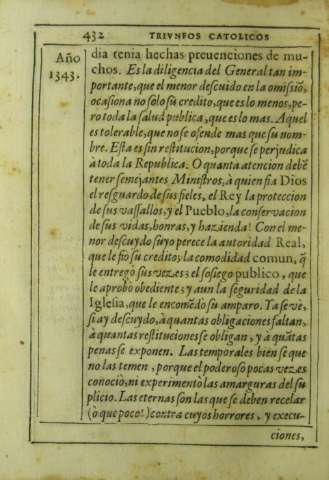 432 TRIVNFOS CATOLICOS
Año
1343.
dia tenia hechas preuenciones de mu-
chos. Es la diligencia del General tan im-
portante, que el menor descuido en la omissiõ,
ocasiona no solo sũ credito, que es lo menos, pe-
ro toda la salud publica, que es lo mas. Aquel
es tolerable, que no se ofende mas que su nom-
bre. Esta es sin restitucion, porque se perjudica
à toda la Republica. O quanta atencion debẽ
tener semejantes Ministros, à quien fia Dios
el resguardo de sus fieles, el Rey la proteccion
de sus vassallos, y el Pueblo, la conseruacion
de sus vidas, honras, y hazienda! Con el me-
nor descuydo suyo perece la autoridad Real,
que le fiò su credito; la comodidad comun, q̃
le entregò sus vezes; el sosiego publico, que
le aprobo obediente; y aun la seguridad de la
Iglesia, que le encomẽdo su amparo. Ya se vè,
si ay descuydo, à quantas obligaciones faltan,
à quantas restituciones se obligan, y à quãtas
penas se exponen. Las temporales bien se que
no las temen, porque el poderoso pocas vezes
conociò, ni experimentò las amarguras del su
plicio. Las eternas son las que se deben recelar
(ò que poco!) contra cuyos horrores, y execu-
ciones,